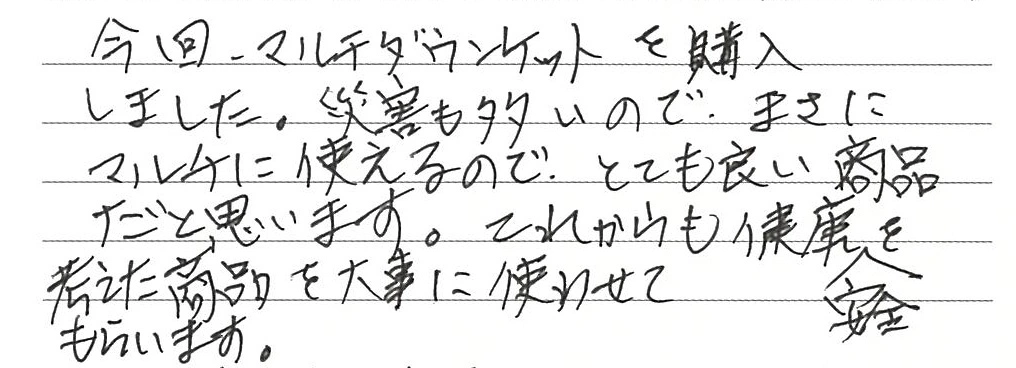 今回、マルチダウンケットを購入
しました。災害も多いので、まさに
マルチに使えるので、とても良い商品
だと思います。これからも健康を
安全
考えた商品を大事に使わせて
もらいます。